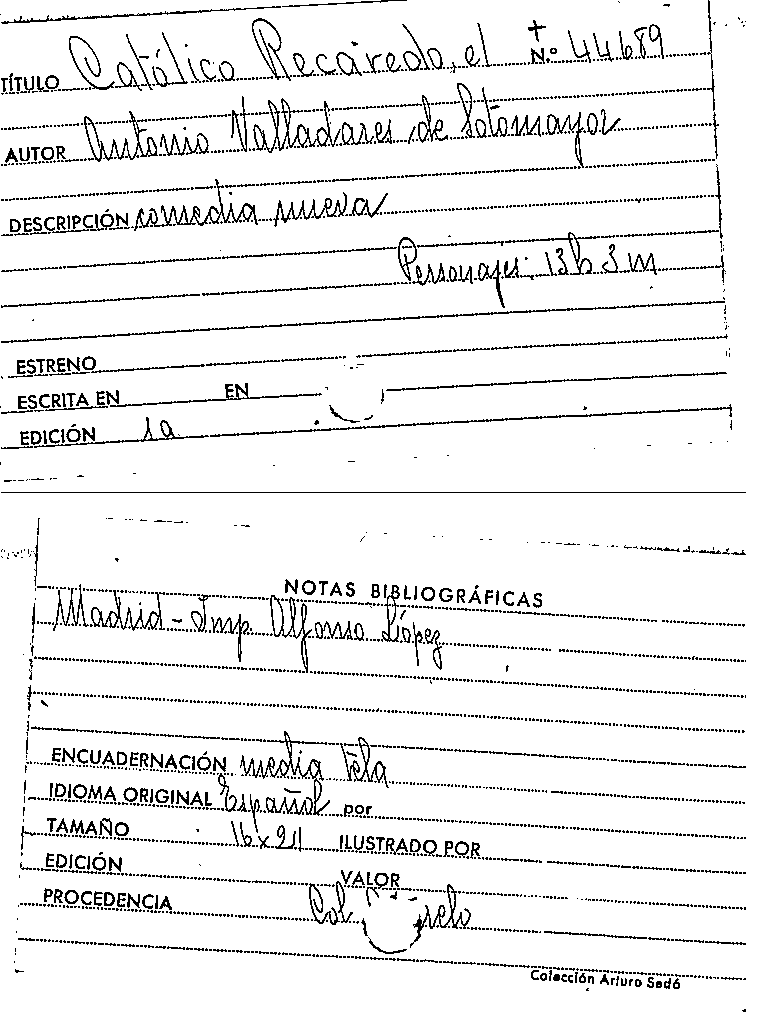 TÍTULO Católico Recaredo, el N.º 44689
AUTOR Antonio Valladares de Sotomayor
DESCRIPCIÓN comedia nueva
Personajes: 13h 3m
ESTRENO
ESCRITA EN EN
EDICIÓN 1a
NOTAS BIBLIOGRÁFICAS
Madrid - Imp. Alfonso López
ENCUADERNACIÓN media tela
IDIOMA ORIGINAL Español por
TAMAÑO 16x21 ILUSTRADO POR
EDICIÓN VALOR
PROCEDENCIA Col
Colección Arturo Sedó